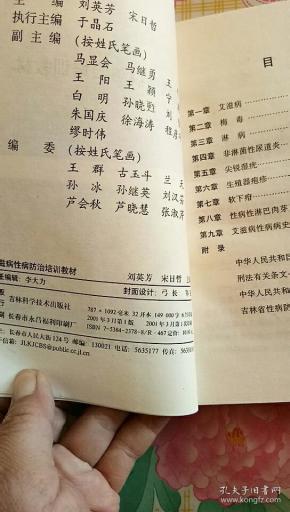 主 编 刘英芳 宋日哲
执行主编 于晶石
副主编 (按姓氏笔画)
马显会 马继勇 王
王 阳 王 颖 宁
白 明 孙晓
朱国庆 徐海涛 程
缪时伟
编 委 (按姓氏笔画)
王 群 古玉斗 兰 天
孙 冰 孙继英 刘汉
芦会秋 芦晓慧 张淑
滋病性病防治培训教材
刘英芳 宋日哲 主
编辑:李大力
封面设计:弓 长
版 吉林科学技术出版社
787×1092毫米 32开本 149 000字
2001年3月第1版 2001年3月第1次
印刷:长春市永昌福利印刷厂
ISBN 7-5384-2378-8/R·467 定价:
长春市人民大街124号 邮编:130021 电话:5635177 传真:
信箱:JLKJCBS@public.cc.jl.cn
目
第一章 艾滋病
第二章 梅 毒
第三章 淋 病
第四章 非淋菌性尿道炎
第五章 尖锐湿疣
第六章 生殖器疱疹
第七章 软下疳
第八章 性病性淋巴肉芽
第九章 艾滋病性病病史
附 录
中华人民共和
刑法有关条文
中华人民共和
吉林省性病防
孔夫子旧书网